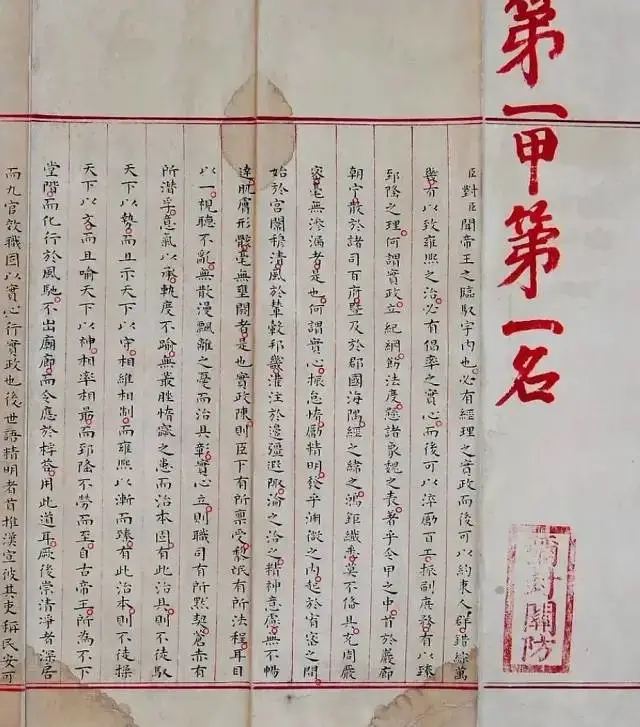 第一甲第一名
彌封關防
臣對臣聞帝王之臨馭宇內也必有經理之實政而後可以約束人群錯綜萬
幾有以致雍熙之治必有倡率之實心而後可以淬勵百工振刷庶務有以臻
郅隆之理何謂實政立紀綱飭法度懸諸象魏之表著乎令甲之中首於巖廊
朝寧散於諸司百府暨及於郡國海隅經之緯之鴻鉅纖悉莫不備具充周嚴
密毫無滲漏者是也何謂實心振怠惰勵精明發乎淵微之內起於宥密之間
始於宮闈穆清風於輦轂邦畿灌注於邊疆遐陬淪之洽之精神意慮無不暢
達肌膚形骸毫無壅閼者是也實政陳則臣下有所稟受黎氓有所法程耳目
以一視聽不亂無散漫飄離之憂而治具彰實心立則職司有所默契蒼赤有
所潛孚意氣以承軌度不踰無叢脞惰窳之患而治本固有此治具則不徒馭
天下以勢而且示天下以守相維相制而雍熙以漸而臻有此治本則不徒操
天下以文而且喻天下以神相率相勖而郅隆不勞而至自古帝王所為不下
堂階而化行於風馳不出廟廊而令應於桴答用此道耳厥後崇清凈者深居
而九官效職固以實心行實政也後世語精明者首推漢宣彼其吏稱民安可